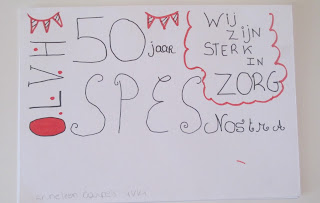 O.L.V.H
50 jaar
SPES Nostra
WIJ
ZIJN
STERK
IN
ZORG